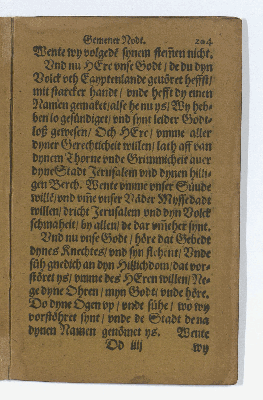 Gemener Nodt. 204
Wente wy volgedē synem stemēn nicht.
Vnd nu HEre vnse Godt / de du dyn
Volck vth Egyptenlande gevöret heffst /
mit starcker handt / vnde heffst dy einen
Namen gemaket / alse he nu ys / Wy heb-
ben jo gesündiget / vnd synt leider Godt-
loß gewesen / Och HEre / vmme aller
dyner Gerechticheit willen / lath aff van
dynem Thorne vnde Grimmicheit auer
dyne Stadt Jerusalem vnd dynen hilli-
gen Berch. Wente vmme vnser Sünde
wille / vnd vm̄e vnser Väder Myssedadt
willen / dricht Jerusalem vnd dyn Volck
schmaheit / by allen / de dar vm̄her synt.
Vnd nu vnse Godt / höre dat Gebedt
dynes Knechtes / vnd syn flehent / Vnde
süh gnedich an dyn Hillichdom / dat vor-
störet ys / vmme des HEren willen / Ne-
ge dyne Ohren / myn Godt / vnde höre.
Do dyne Ogen vp / vnde sühe / wo wy
vorstöhret synt / vnde de Stadt de na
dynen Namen genömet ys. Wente
Dd iiij wy